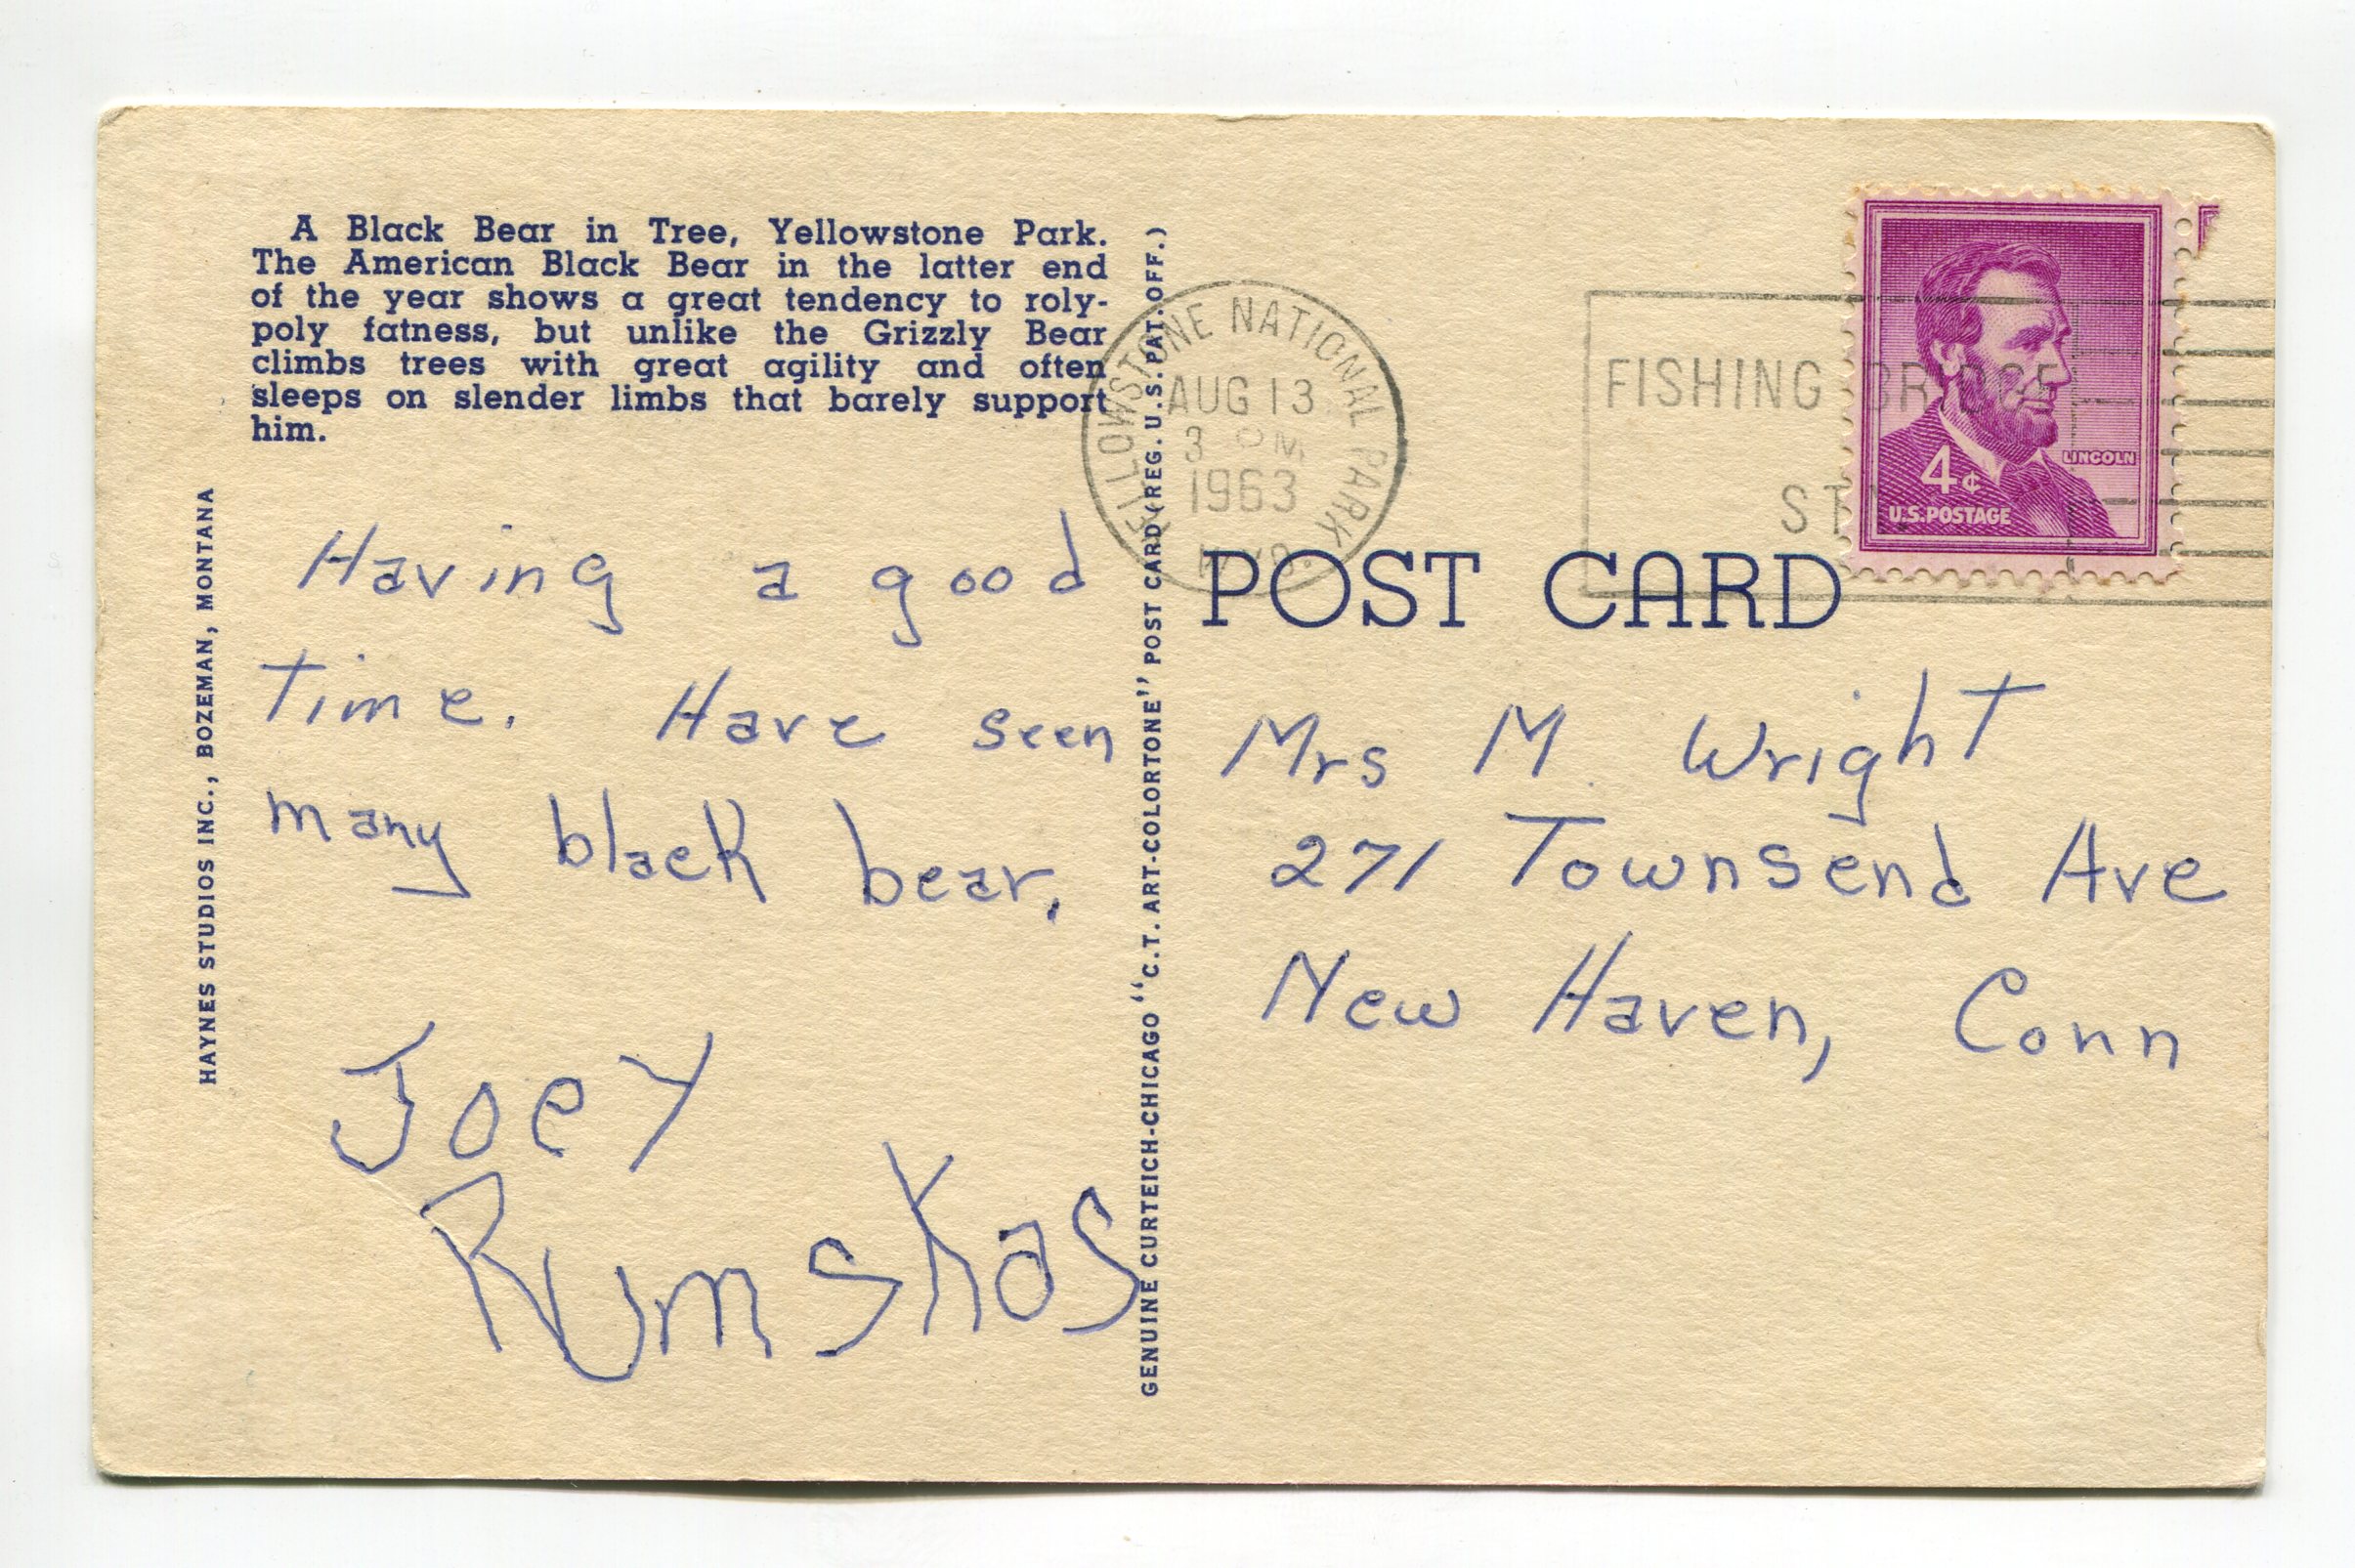 A Black Bear in Tree, Yellowstone Park.
The American Black Bear in the latter end
of the year shows a great tendency to roly-
poly fatness, but unlike the Grizzly Bear
climbs trees with great agility and often
sleeps on slender limbs that barely support
him.
HAYNES STUDIOS INC., BOZEMAN, MONTANA
Having a good
Time. Have seen
many black bear.
Joey
Rumskas
GENUINE CURTEICH-CHICAGO "C.T. ART-COLORTONE" POST CARD (REG. U.S. PAT. OFF.)
YELLOWSTONE NATIONAL PARK
AUG 13
3 PM
1963
WYO.
FISHING BRIDGE
LINCOLN
4¢
U.S. POSTAGE
POST CARD
Mrs M. Wright
271 Townsend Ave
New Haven, Conn